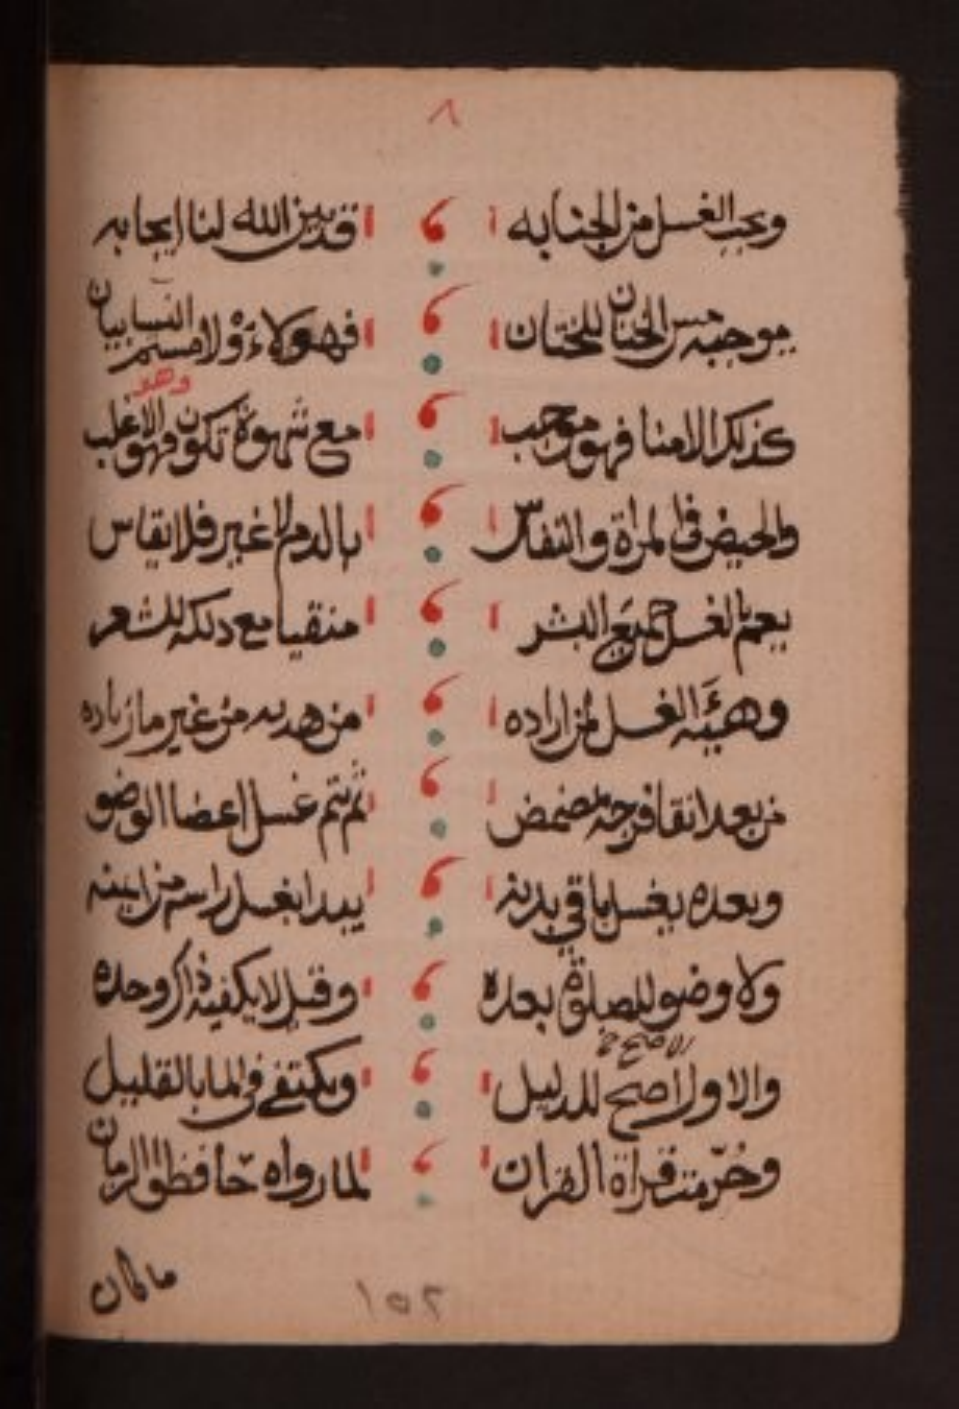 ٨
ويجب الغسل من الجنابه قد بين الله لنا ايجابه
موجبه مس الختان للختان فهو كلاء ولامستم النسا بيان
وهو
كذلك الامنا فهو موجب مع شهوة تكون فهو الاغلب
والحيض في المراة والنفاس بالدم لا غير فلا يقاس
يعم بالغسل جميع البشر منقيا مع دلكه للشعر
وهيئة الغسل لمن اراده من هديه من غير ما زياده
من بعد انقا فرجه مضمض ثم تتم غسل اعضا الوضو
وبعده يغسل باقي بدنه يبدا بغسل راسه من ايمنه
ولا وضو للصلوة بعده وقيل لا يكفيه ذاك وحده
الاصح
والاول اصح للدليل ويكتفى في الما بالقليل
وحرمت قراة القران لما رواه حافظوا الزمان
ما كان
١٥٢